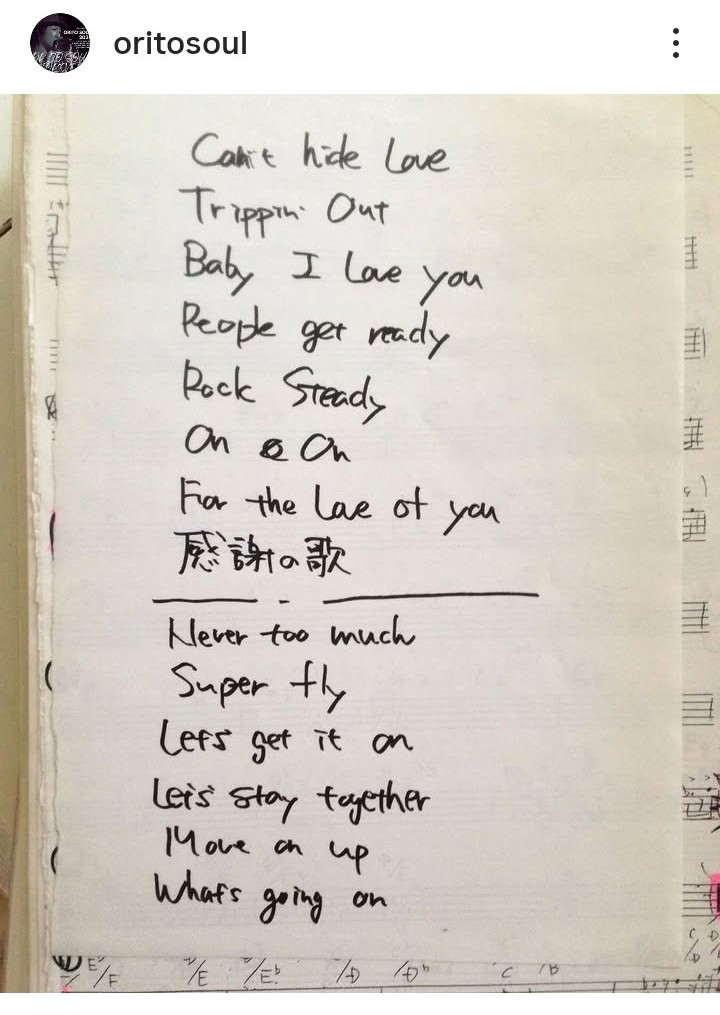 oritosoul
Can't hide Love
Trippin' Out
Baby I Love you
People get ready
Rock Steady
On & On
For the Love of you
感謝の歌
Never too much
Super fly
Let's get it on
Let's stay together
Move on up
What's going on
E♭/F /E /E♭ /D /D♭ C /B